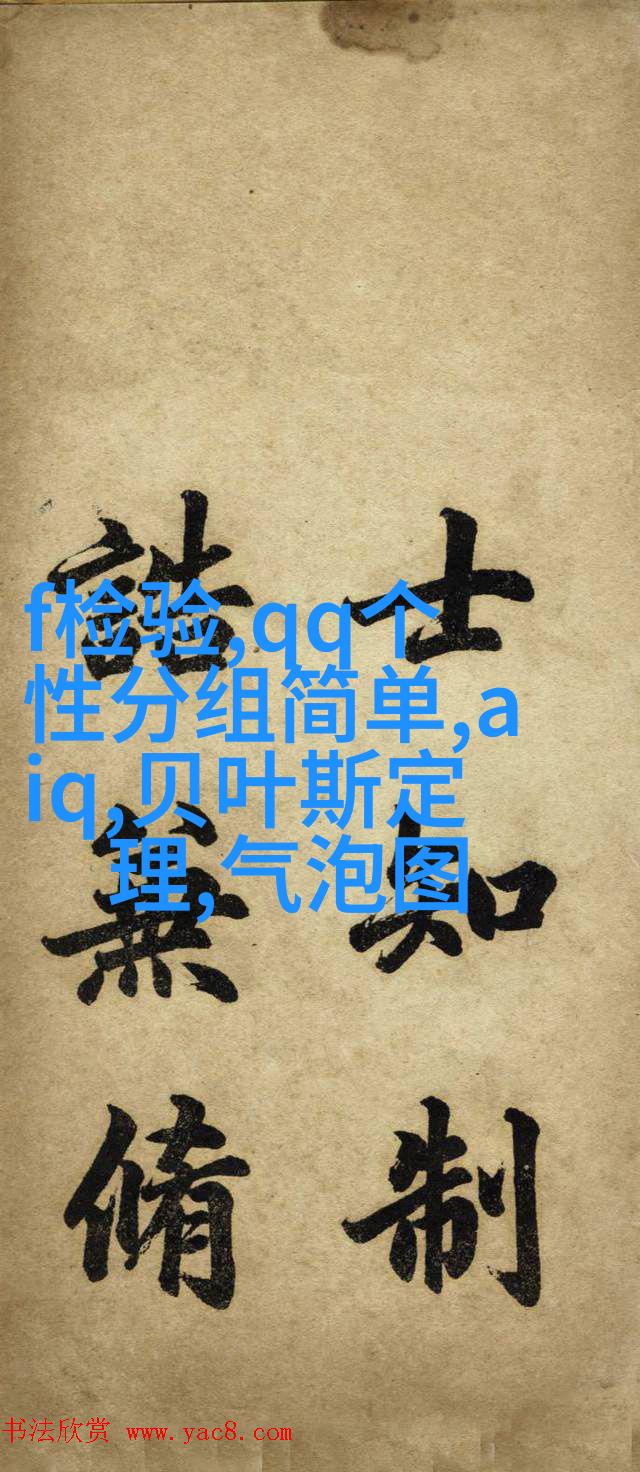 f检验,qq个
性分组简单,a
iq,贝叶斯定
理,气泡图
士知制
誥兼脩
书法欣赏 www.yac8.com